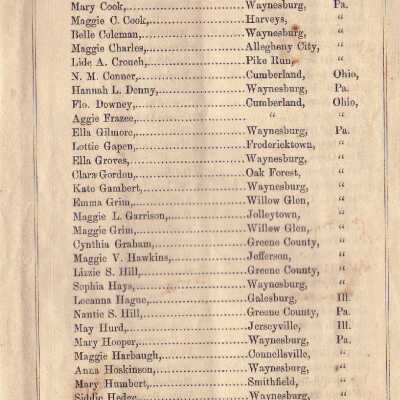 Mary Cook,........................Waynesburg, Pa.
Maggie C. Cook,........................Harveys, "
Belle Coleman,........................Waynesburg, "
Maggie Charles,........................Allegheny City, "
Lide A. Crouch,........................Pike Run, "
N. M. Conner,........................Cumberland, Ohio,
Hannah L. Denny,........................Waynesburg, Pa.
Flo. Downey,........................Cumberland, Ohio,
Aggie Frazee,........................ " "
Ella Gilmore,........................Waynesburg, Pa.
Lottie Gapen,........................Fredericktown, "
Ella Groves,........................Waynesburg, "
Clara Gordon,........................Oak Forest, "
Kate Gambert,........................Waynesburg, "
Emma Grim,........................Willow Glen, "
Maggie L. Garrison,........................Jolleytown, "
Maggie Grim,........................Willow Glen, "
Cynthia Graham,........................Greene County, "
Maggie V. Hawkins,........................Jefferson, "
Lizzie S. Hill,........................Greene County, "
Sophia Hays,........................Waynesburg, "
Leeanna Hague,........................Galesburg, Ill.
Nantie S. Hill,........................Greene County, Pa.
May Hurd,........................Jerseyville, Ill.
Mary Hooper,........................Waynesburg, Pa.
Maggie Harbaugh,........................Connellsville, "
Anna Hoskinson,........................Waynesburg, "
Mary Humbert,........................Smithfield, "
Siddie Hedge,........................Waynesburg, "